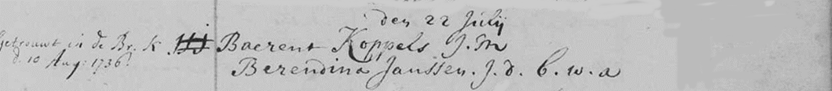 den 22 Julij
Getrouwt in de Br. K Baerent Koppels J. M
d. 10 Aug: 1736 Berendina Janssen. J. d. b. w. a